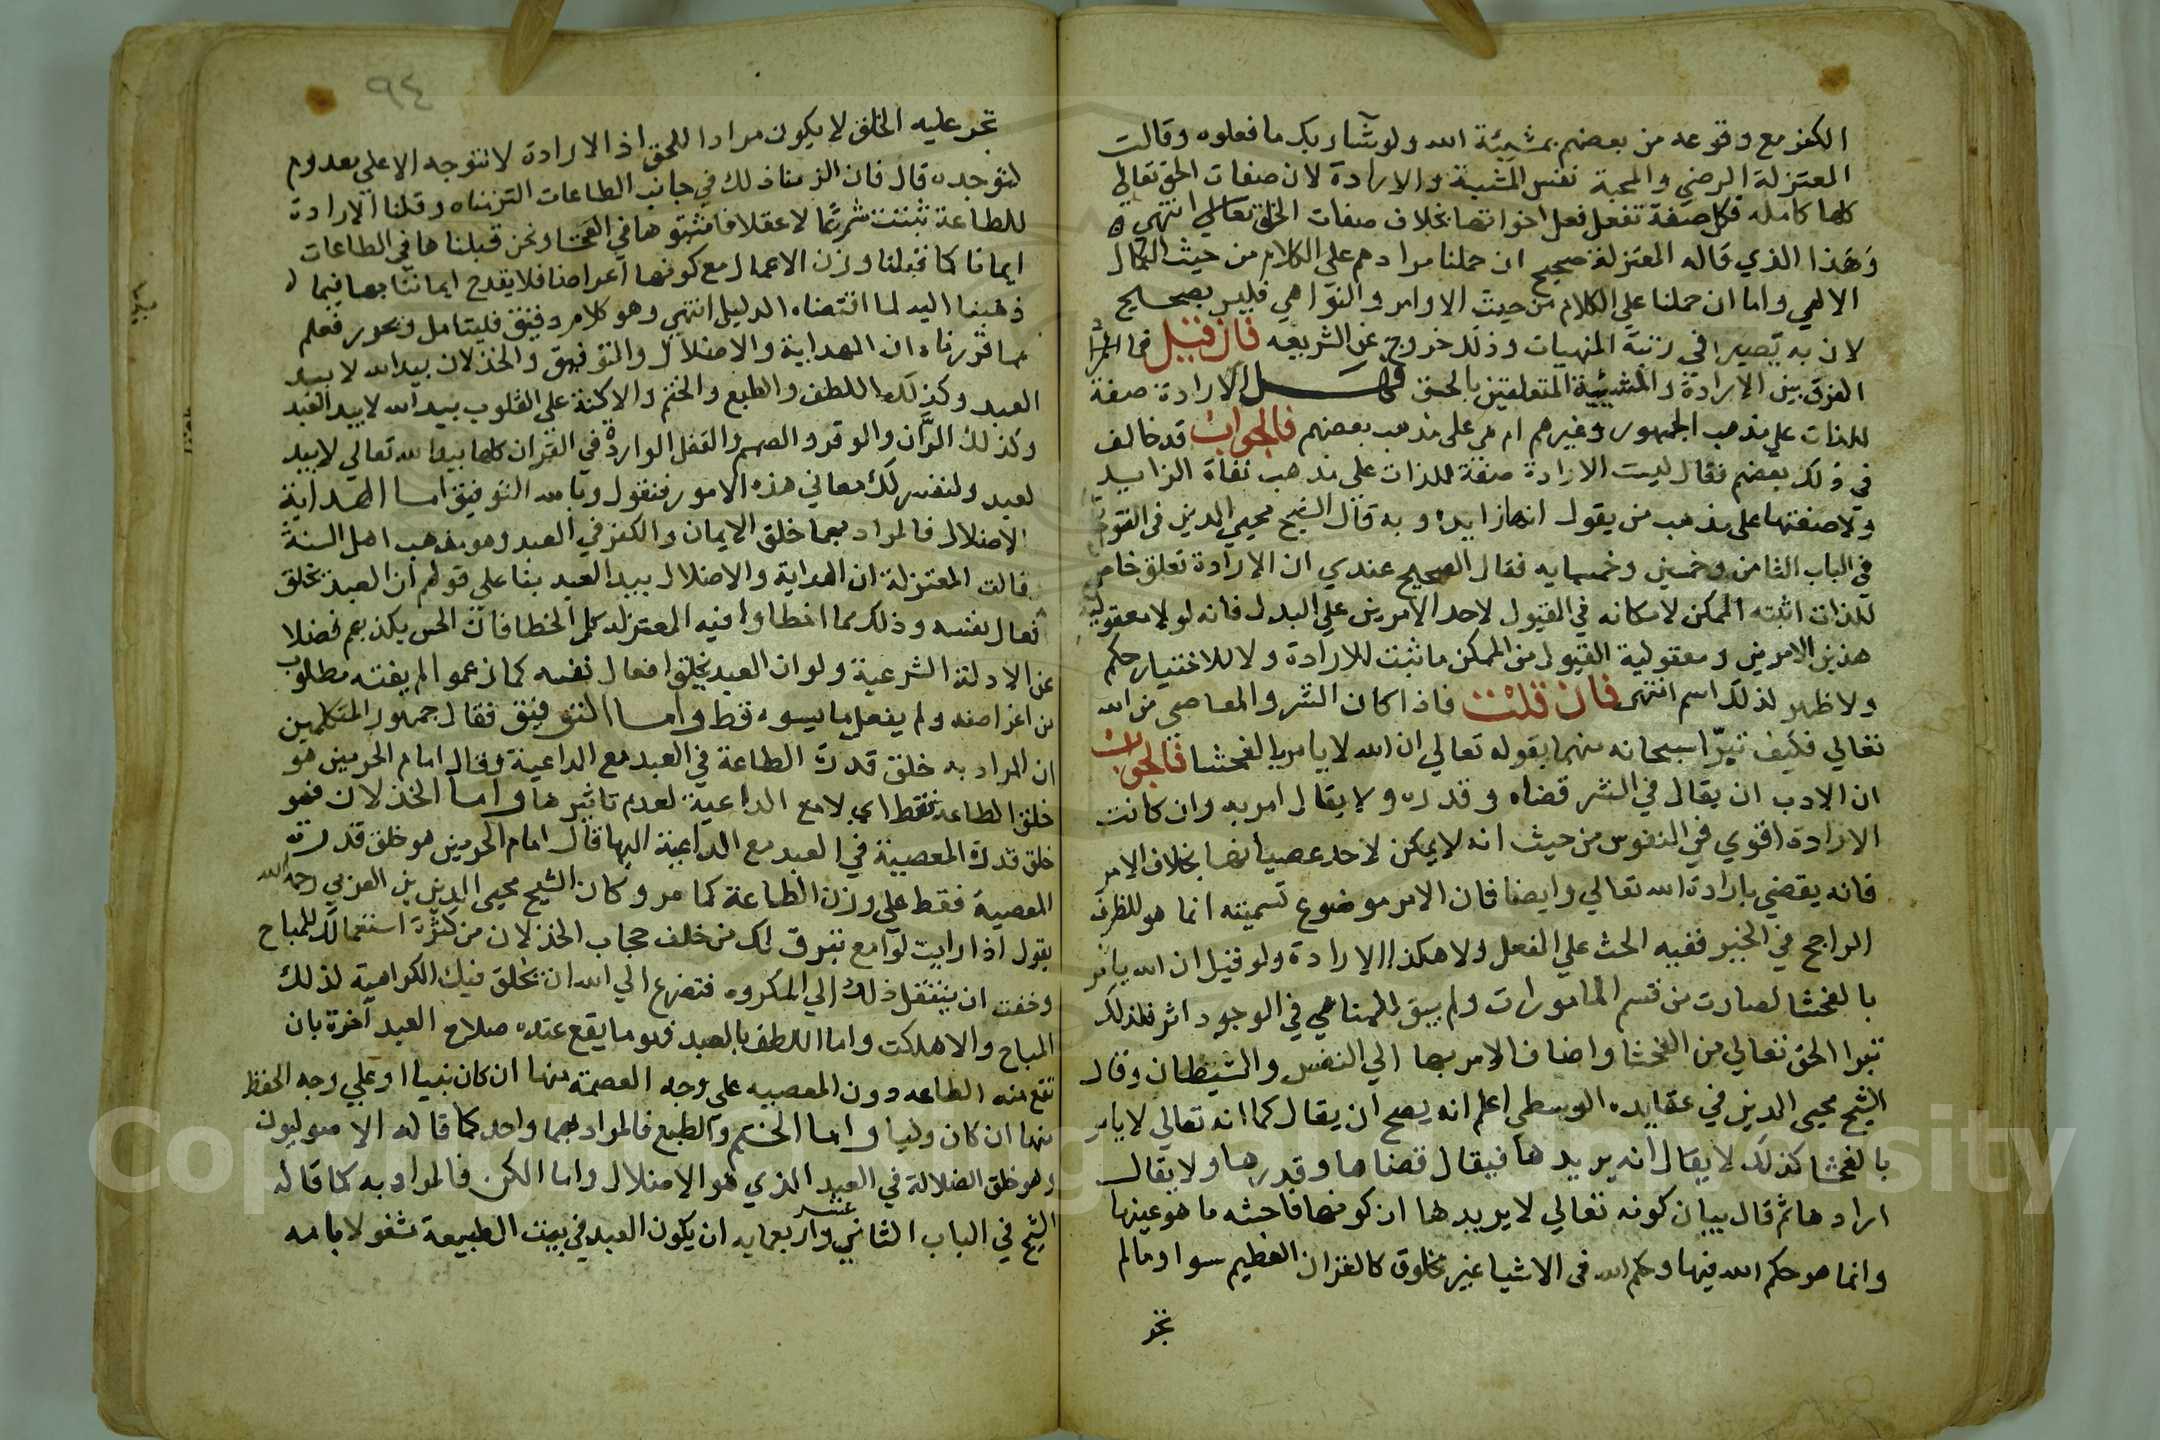 الكفر مع وقوعه من بعضهم بمشيئة الله ولو شاء ربك ما فعلوه وقالت
المعتزلة الرضي والمحبة نفس المشية والارادة لان صفات الحق تعالي
كلها كامله فكل صفة تفعل فعل اخواتها بخلاف صفات الخلق تعالي انتهي
وهذا الذي قاله المعتزلة صحيح ان حملنا مرادهم علي الكلام من حيث الكمال
الالهي واما ان حملنا علي الكلام من حيث الاوامر والنواهي فليس بصحيح
لان به يصير في رتبة المنهيات وذلك خروج عن الشريعه فان قيل فما
الفرق بين الارادة والمشيئة المتعلقين بالحق وهل الارادة صفة
للذات علي مذهب الجمهور وغيرهم ام هي علي مذهب بعضهم فالجواب قد خالف
في ذلك بعضهم فقال ليست الارادة صفة للذات علي مذهب نفاة الزايد
ولا صفتها علي مذهب من يقول انها زايده وبه قال الشيخ محيي الدين في الفتوحات
في الباب الثامن وخمسين وخمسمايه فقال الصحيح عندي ان الارادة تعلق خاص
للذات اثبته الممكن لامكانه في القبول لاحد الامرين علي البدل فانه لولا معقولية
هذين الامرين ومعقولية القبول من الممكن ما ثبت للارادة ولا للاختيار حكم
ولا ظهر لذلك اسم انتهي فان قلت فاذا كان الشر والمعاصي من الله
تعالي فكيف تبرأ سبحانه منهما بقوله تعالي ان الله لا يامر بالفحشا فالجواب
ان الادب ان يقال في الشر قضاه وقدره ولا يقال امر به وان كانت
الارادة اقوي في النفوس من حيث انه لا يمكن لاحد عصيانها بخلاف الامر
فانه يقضي بارادة الله تعالي وايضا فان الامر موضوع تسميته انما هو للطرف
الراجح في الخير ففيه الحث علي الفعل ولا هكذا الارادة ولو قيل ان الله يامر
بالفحشا لصارت من قسم المامورات ولم يبق للمناهي في الوجود اثر فلذلك
تبرا الحق تعالي من الفحشا واضاف الامر بها الي النفس والشيطان وقال
الشيخ محيي الدين في عقايده الوسطي اعلم انه يصح ان يقال كما انه تعالي لا يامر
بالفحشا كذلك لا يقال انه يريدها فيقال قضاها وقدرها ولا يقال
ارادها ثم قال بيان كونه تعالي لا يريدها ان كونها فاحشه ما هو عينها
وانما هو حكم الله فيها وحكم الله في الاشيا غير مخلوق كالقران العظيم سوا وما لم
تجر
٩٤
تجر عليه الخلق لا يكون مرادا للحق اذ الارادة لا تتوجه الا علي معدوم
لتوجده قال فان الزمنا ذلك في جانب الطاعات التزمناه وقلنا الارادة
للطاعة ثبتت شرعا لا عقلا فاثبتوها في الفحشا ونحن قبلناها في الطاعات
ايمانا كما قبلنا وزن الاعمال مع كونها اعراضا فلا يقدح ايماننا بها فيما
ذهبنا اليه لما اقتضاه الدليل انتهي وهو كلام دقيق فليتامل ويحرر فعلم
مما قررناه ان الهداية والاضلال والتوفيق والخذلان بيد الله لا بيد
العبد وكذلك اللطف والطبع والختم والاكنة علي القلوب بيد الله لا بيد العبد
وكذلك الران والوقر والصمم والقفل الواردة في القران كلها بيد الله تعالي لا بيد
لعبد ولنفسر لك معاني هذه الامور فنقول وبالله التوفيق اما الهداية
الاضلال فالمراد بهما خلق الايمان والكفر في العبد وهو مذهب اهل السنة
قالت المعتزلة ان الهداية والاضلال بيد العبد بنا علي قولهم ان العبد يخلق
افعال نفسه وذلك مما اخطاوا فيه المعتزله كل الخطا فان الحس يكذبهم فضلا
عن الادلة الشرعية ولو ان العبد يخلق افعال نفسه كما زعموا لم يفته مطلوب
من اغراضه ولم يفعل ما يسوه قط واما التوفيق فقال جمهور المتكلمين
ان المراد به خلق قدرة الطاعة في العبد مع الداعية وقال امام الحرمين هو
خلق الطاعة فقط اي لا مع الداعية لعدم تاثيرها واما الخذلان فهو
خلق قدرة المعصية في العبد مع الداعية اليها قال امام الحرمين هو خلق قدرة
المعصية فقط علي وزن الطاعة كما مر وكان الشيخ محيي الدين بن العربي رحمه الله
يقول اذا رايت لوامع تبرق لك من خلف حجاب الخذلان من كثرة استعمالك للمباح
وخفت ان ينتقل ذلك الي المكروه فتضرع الي الله ان يخلق فيك الكراهية لذلك
المباح والا هلكت واما اللطف بالعبد فهو ما يقع عنده صلاح العبد آخرة بان
تقع منه الطاعه دون المعصيه علي وجه العصمة منها ان كان نبيا او علي وجه الحفظ
منها ان كان وليا واما الختم والطبع فالمراد بهما واحد كما قاله الاصوليون
وهو خلق الضلالة في العبد الذي هو الاضلال واما الكن فالمراد به كما قاله
الشيخ في الباب الثاني عشر واربعمايه ان يكون العبد في بيت الطبيعة مشغولا بامه